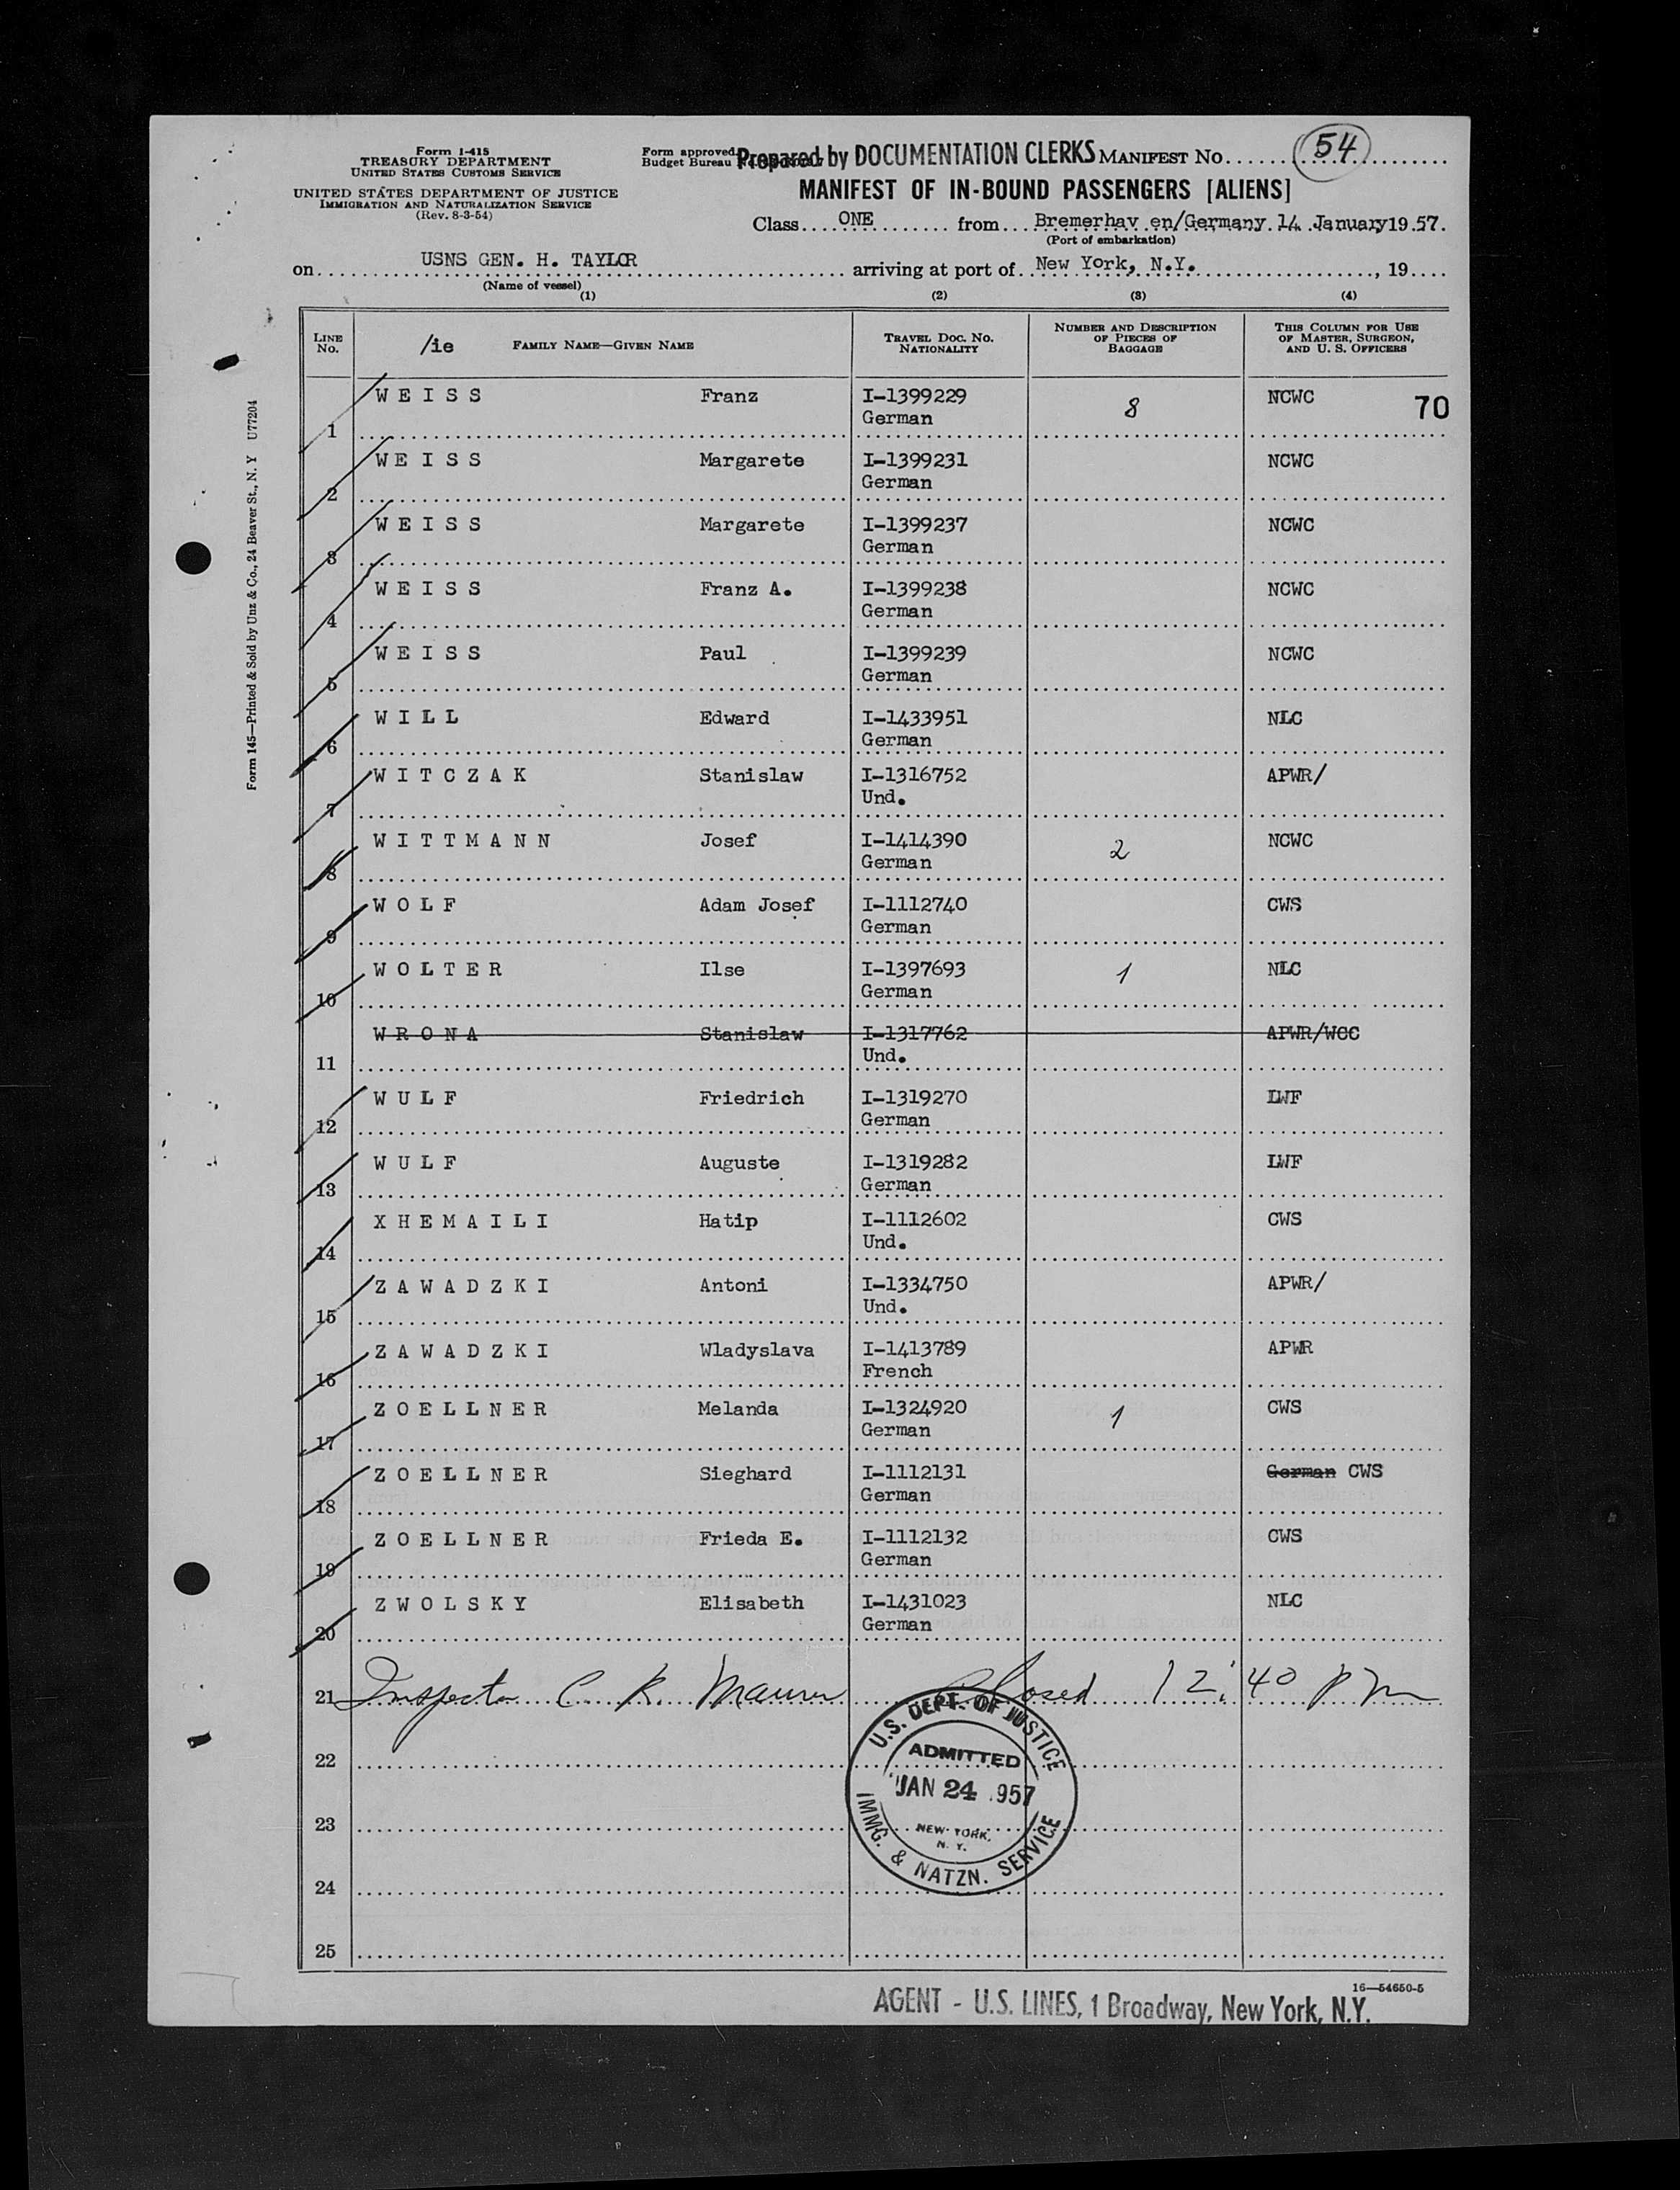 Form I-415
TREASURY DEPARTMENT
UNITED STATES CUSTOMS SERVICE
UNITED STATES DEPARTMENT OF JUSTICE
IMMIGRATION AND NATURALIZATION SERVICE
(Rev. 8-3-54)
Form approved.
Budget Bureau
Prepared by DOCUMENTATION CLERKS MANIFEST No. 54
MANIFEST OF IN-BOUND PASSENGERS [ALIENS]
Class ONE from Bremerhav en/Germany. 14 January 1957.
(Port of embarkation)
on USNS GEN. H. TAYLOR arriving at port of New York, N.Y., 19
(Name of vessel)
(1) (2) (3) (4)
LINE No. /ie FAMILY NAME—GIVEN NAME TRAVEL DOC. NO. NATIONALITY NUMBER AND DESCRIPTION OF PIECES OF BAGGAGE THIS COLUMN FOR USE OF MASTER, SURGEON, AND U. S. OFFICERS
1 WEISS Franz I-1399229 German 8 NCWC 70
2 WEISS Margarete I-1399231 German NCWC
3 WEISS Margarete I-1399237 German NCWC
4 WEISS Franz A. I-1399238 German NCWC
5 WEISS Paul I-1399239 German NCWC
6 WILL Edward I-1433951 German NLC
7 WITCZAK Stanislaw I-1316752 Und. APWR/
8 WITTMANN Josef I-1414390 German 2 NCWC
9 WOLF Adam Josef I-1112740 German CWS
10 WOLTER Ilse I-1397693 German 1 NLC
11 WRONA Stanislaw I-1317762 Und. APWR/WCC
12 WULF Friedrich I-1319270 German LWF
13 WULF Auguste I-1319282 German LWF
14 XHEMAILI Hatip I-1112602 Und. CWS
15 ZAWADZKI Antoni I-1334750 Und. APWR/
16 ZAWADZKI Wladyslava I-1413789 French APWR
17 ZOELLNER Melanda I-1324920 German 1 CWS
18 ZOELLNER Sieghard I-1112131 German German CWS
19 ZOELLNER Frieda E. I-1112132 German CWS
20 ZWOLSKY Elisabeth I-1431023 German NLC
21 Inspector C. K. Maurer Closed 12:40 PM
22
23
24
25
U.S. DEPT. OF JUSTICE
ADMITTED
JAN 24 1957
NEW YORK, N. Y.
IMMG. & NATZN. SERVICE
16—54650-5
AGENT - U.S. LINES, 1 Broadway, New York, N.Y.
Form 145—Printed & Sold by Unz & Co., 24 Beaver St., N. Y U77204